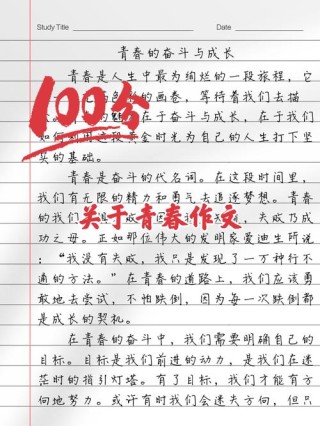 Study Title Date
青春的奋斗与成长
青春是人生中最为绚烂的一段旅程，它
的画卷，等待着我们去描
100分
在于奋斗与成长，在于我们
如何利用这段黄金时光为自己的人生打下坚
实的基础。
青春是奋斗的代名词。在这段时间里，我
们有无限的精力和勇气去追逐梦想。青春
的我们 失败乃成
关于青春作文
功之母。正如那位伟大的发明家爱迪生所说：
“我没有失败，我只是发现了一万种行不
通的方法。”在青春的道路上，我们应该勇
敢地去尝试，不怕跌倒，因为每一次跌倒都
是成长的契机。
在青春的奋斗中，我们需要明确自己的
目标。目标是我们前进的动力，是我们在迷
茫时的指引灯塔。有了目标，我们才能有方
向地努力。或许有时我们会迷失方向，但只